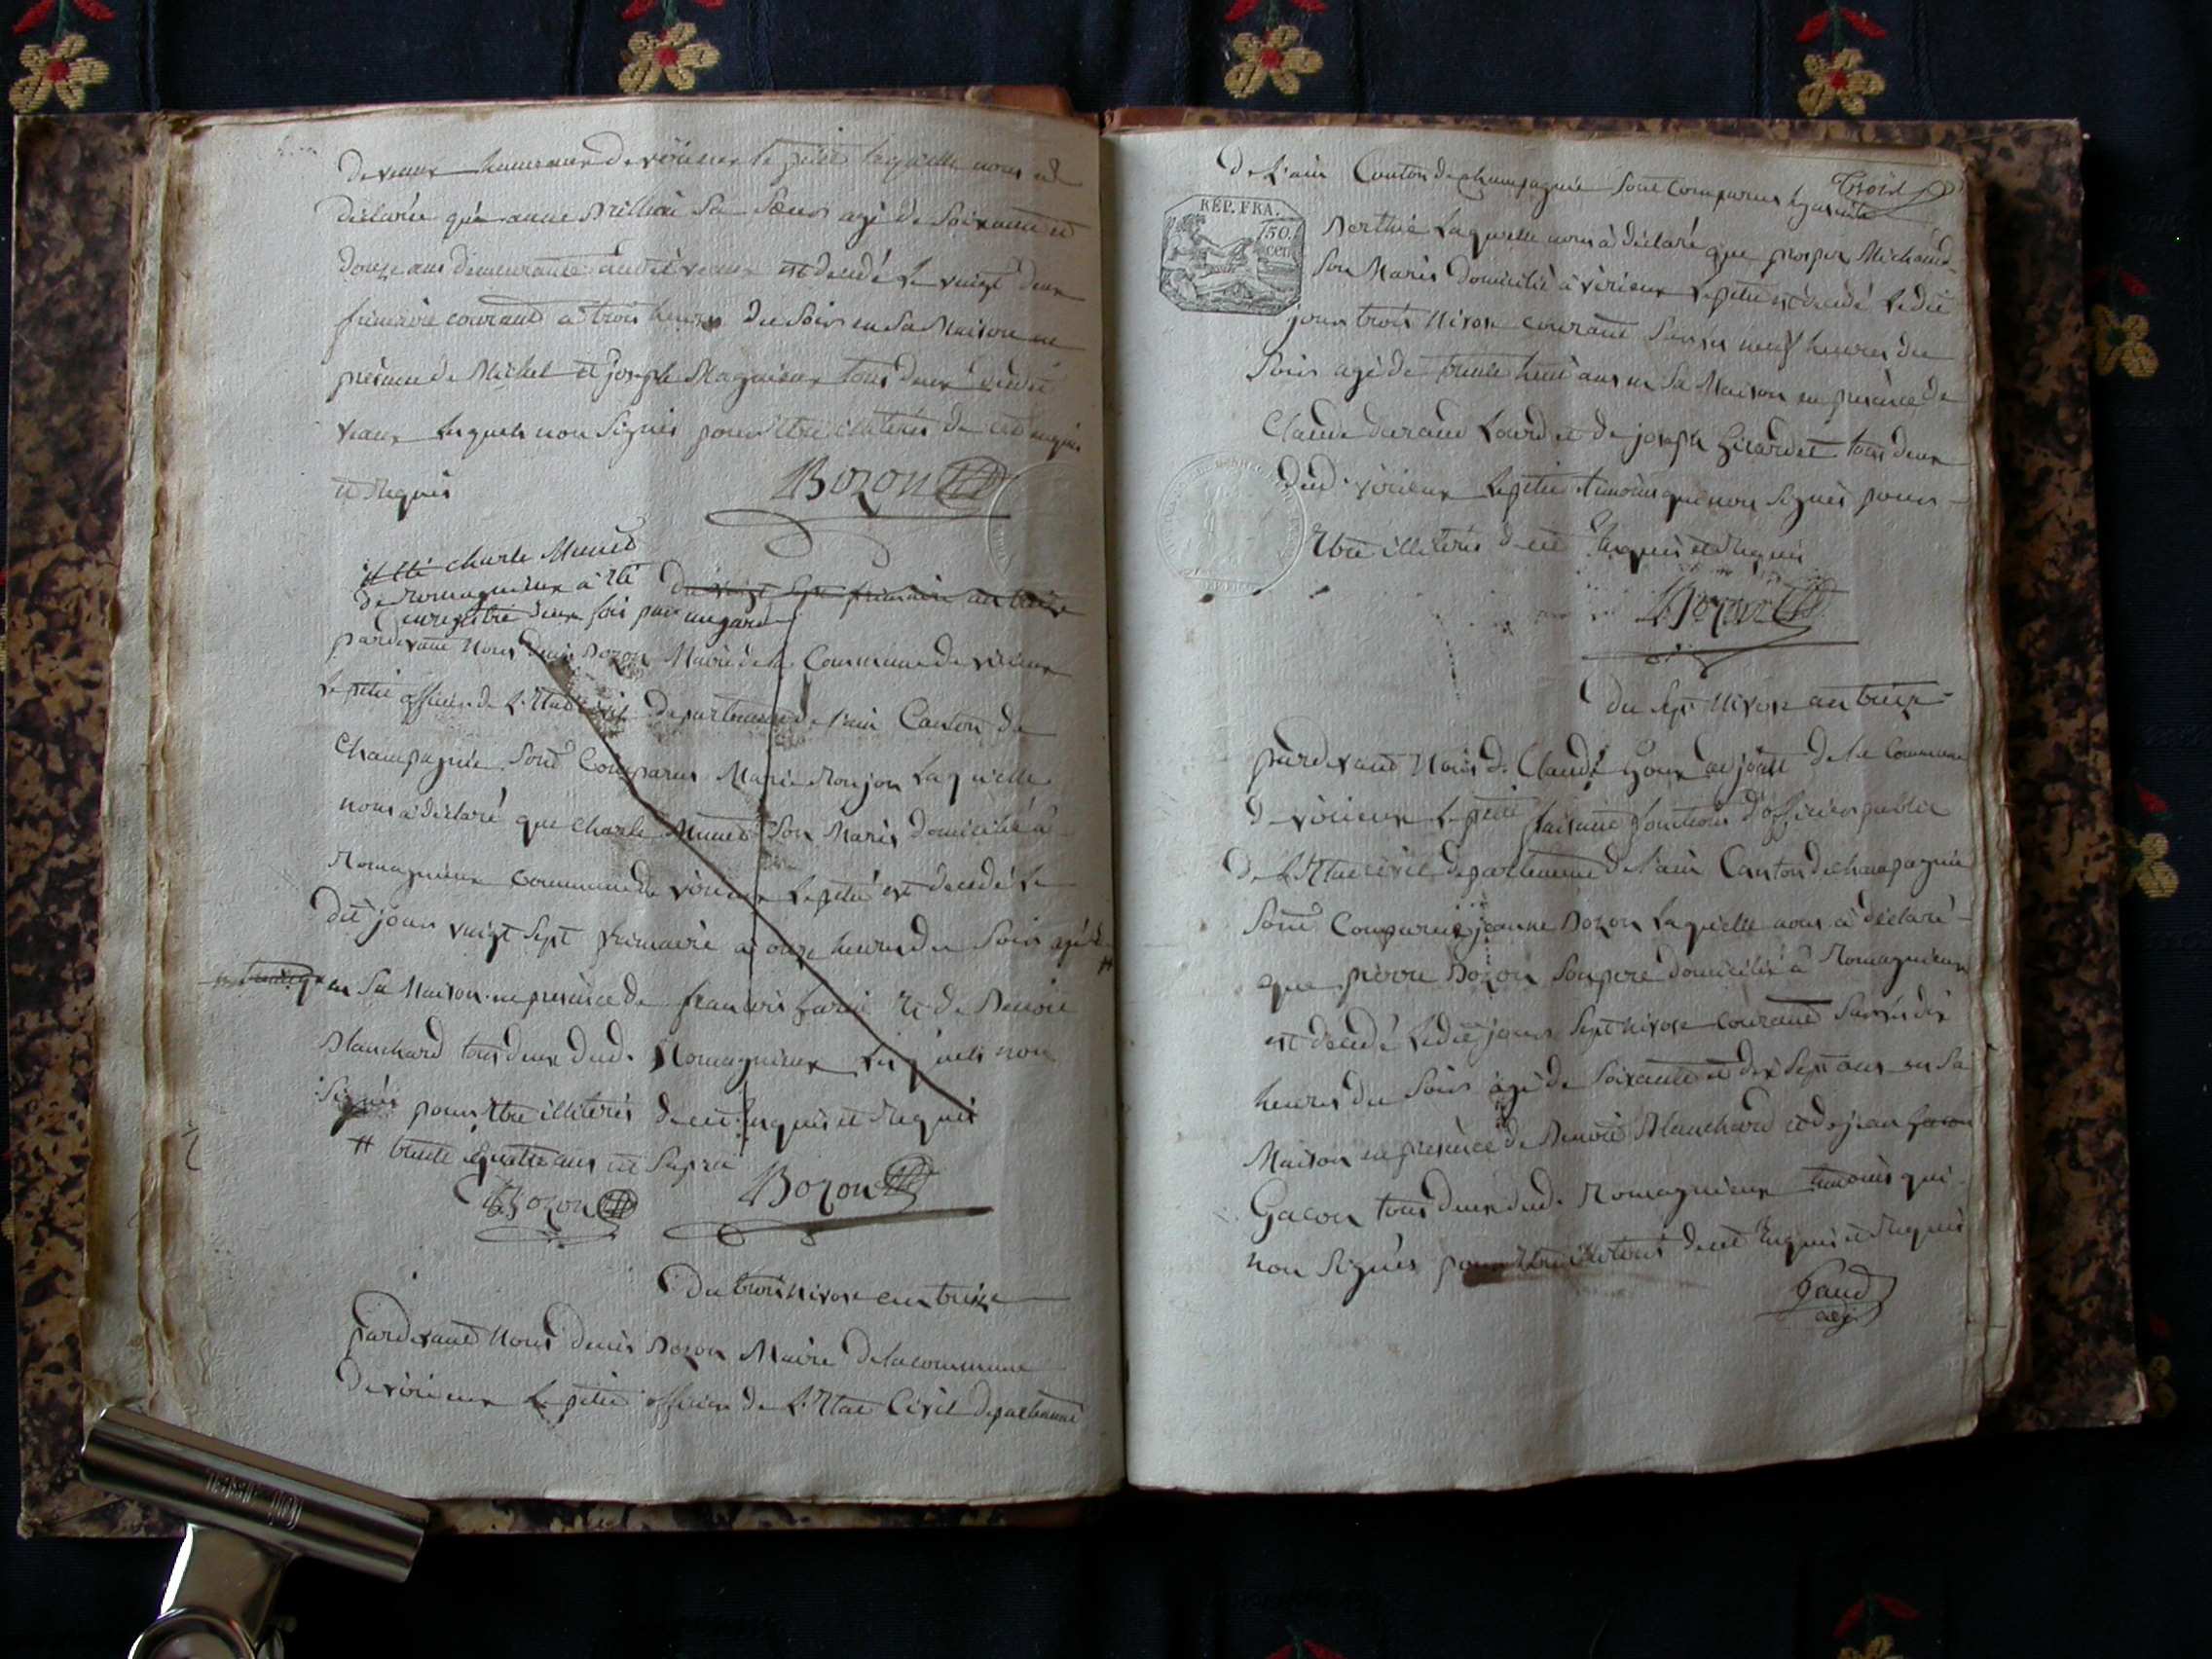 de veaux hameaux de virieux le petit laquelle nous at
déclarée que anne Brillion Sa Sœur agé de Soixante et
douze ans demeurante audit veaux est decedé le vingt deux
frimaire courant a trois heures du Soir en Sa Maison en
présence de Michel et Joseph Magnieux tous deux dudit
veaux lesquels non Signés pour être illiterés de cet enquis
et Requis
Bozon
charle Munet
de Romagnieux à été
enregistré deux fois par megard
Du vingt Sept frimaire an treize
pardevant Nous denis Bozon Maire de la Commune de virieux
le petit officier de L'Etat Civil departement de l'ain Canton de
Champagnie Sont Comparus Marie Roujon Laquelle
nous à déclaré que Charle Munet Son Maris domicilié à
Romagnieux Commune de virieux le petit est decedé le
dit jour vingt Sept frimaire a onze heures du Soir agé de #
en Sa Maison en presence de francois et de Benoit
Blanchard tous deux dud. Romagnieux lesquels non
Signés pour être illiterés de cet enquis et Requis
# trente quatre ans ut Supra
Bozon Bozon
Du trois Nivose an treize
pardevant Nous denis Bozon Maire de la commune
de virieux le petit officier de L'Etat Civil departement
Trois
de L'ain Canton de champagnie Sont Comparus hyacinte
RÉP. FRA.
50.
cen.
Berthié Laquelle nous à déclaré que prosper Michaud
Son Maris domicilié à virieux le petit est decedé ledit
jour trois Nivose courant Sur les neuf heures du
Soir agé de trente huit ans en Sa Maison en presence de
Claude durand Lourd et de joseph Girardet tous deux
dud. virieux le petit temoins que non Signés pour
Etre illiterés de cet Enquis et Requis
Bozon
Du Sept Nivose an treize
pardevant Nous d. Claude adjoint de la Commune
de virieux le petit faisant fonctions d'officier public
de L'Etat civil departement de l'ain Canton de champagnie
Sont Comparus jeanne Bozon Laquelle nous à déclaré
que pierre Bozon Son pere domicilié à Romagnieux
est decedé ledit jour Sept nivose courant Sur les dix
heures du Soir agé de Soixante et dix Sept ans en Sa
Maison en presence de Benoit Blanchard et de jean Gacon
Gacon tous deux dud. Romagnieux temoins qui
non Signés pour Etre illiterés de cet Enquis et Requis
adj